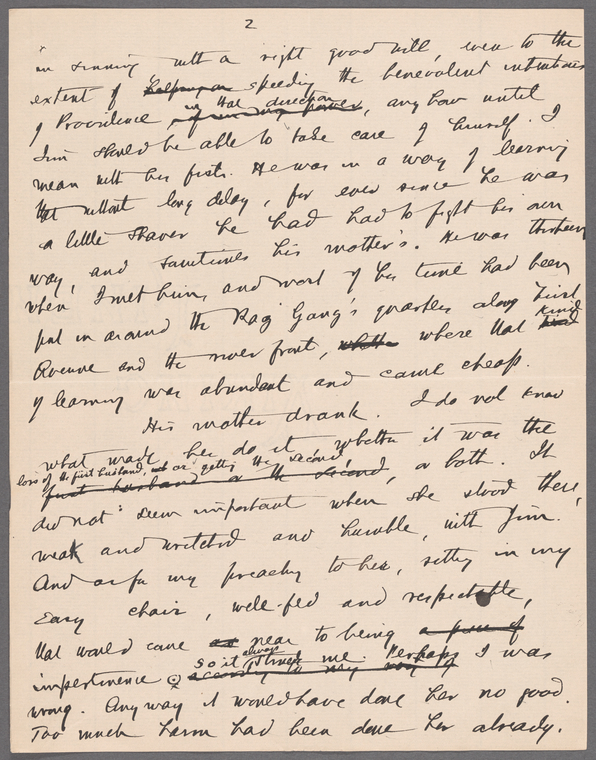 2
in sinning with a right good will, even to the
extent of helping on speeding the benevolent intentions
of Providence in that direction, anyhow until
Jim should be able to take care of himself. I
mean with his fists. He was in a way of learning
that without long delay, for ever since he was
a little shaver he had had to fight his own
way, and sometimes his mother's. He was thirteen
when I met him, and most of his time had been
put in around the Rag Gang's quarters along First
Avenue and the river front, where that kind
of learning was abundant and came cheap.
His mother drank. I do not know
what made her do it, whether it was the
loss of the first husband, or getting the second
first husband or the second, or both. It
did not seem important when she stood there,
weak and wretched and humble, with Jim.
And as for my preaching to her, sitting in my
easy chair, well-fed and respectable,
that would come near to being a piece of
so it always struck me. Perhaps I was
impertinence according to my way of
wrong. Anyway it would have done her no good.
Too much harm had been done her already.